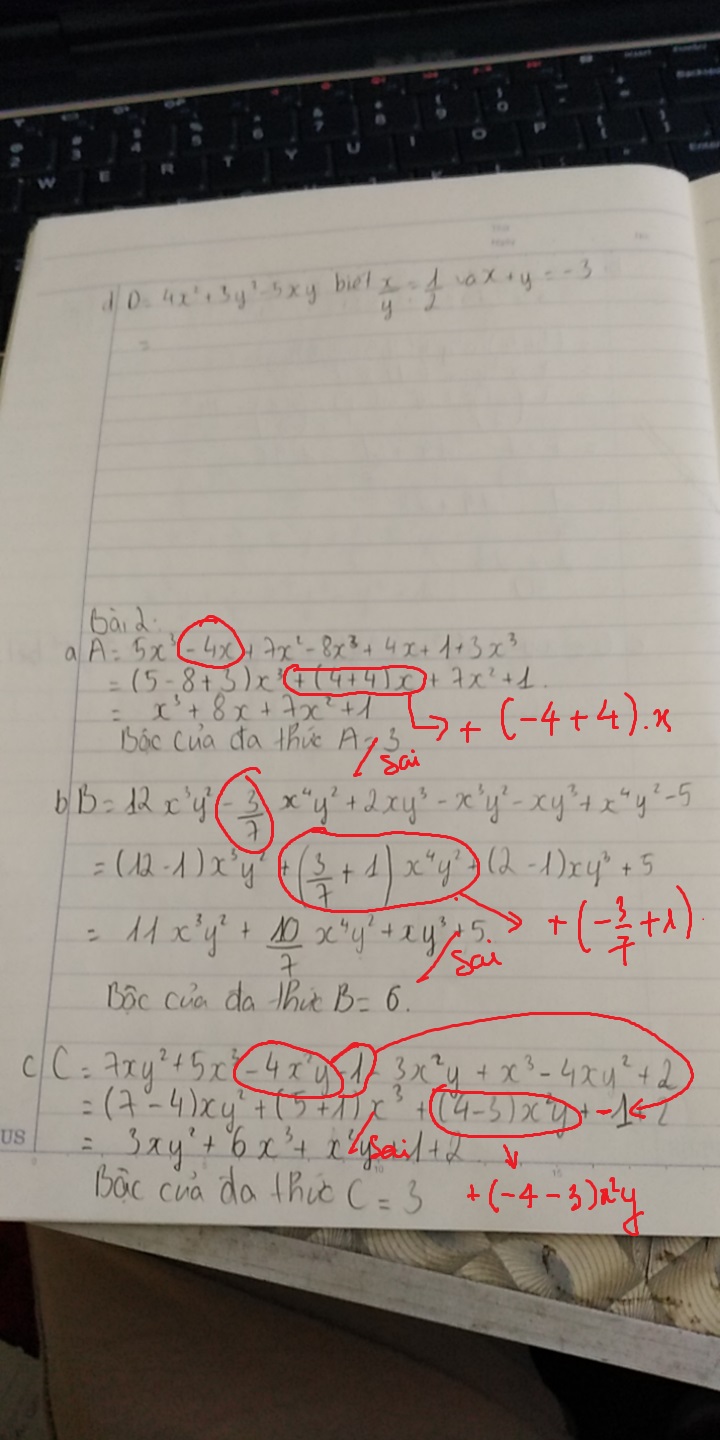 d/ D = 4x² + 3y³ - 5xy biết x/y = 1/2 và x + y = -3
=
Bài 2:
a A = 5x³ - 4x + 7x² - 8x³ + 4x + 1 + 3x³
= (5 - 8 + 3)x³ + (4+4)x + 7x² + 1.
= x³ + 8x + 7x² + 1
+ (-4 + 4).x
Bậc của đa thức A = 3
sai
b B = 12x³y² - 3/7 x⁴y² + 2xy³ - x³y² - xy³ + x⁴y² - 5
= (12-1)x³y² + (3/7 + 1) x⁴y² + (2-1)xy³ + 5
= 11x³y² + 10/7 x⁴y² + xy³ + 5.
+ (-3/7 + 1)
sai
Bậc của đa thức B = 6.
c/ C = 7xy² + 5x³ - 4x²y - 1 - 3x²y + x³ - 4xy² + 2
= (7-4)xy² + (5+1)x³ + (4-3)x²y + -1 + 2
= 3xy² + 6x³ + x²y - 1 + 2
sai
Bậc của đa thức C = 3
+ (-4 - 3)x²y
US